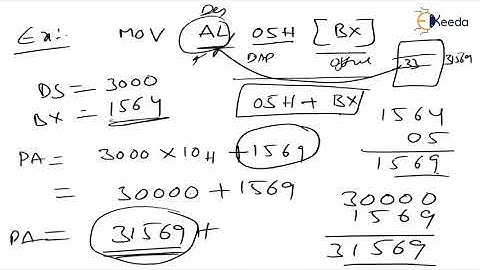 Ex:- MOV AL 05H [BX]
Des
DAP offset
33 31569
05H + BX
DS = 3000
BX = 1564
1564
05
1569
PA = 3000 × 10H + 1569
= 30000 + 1569
PA = 31569 H
30000
1569
31569
Ekeeda